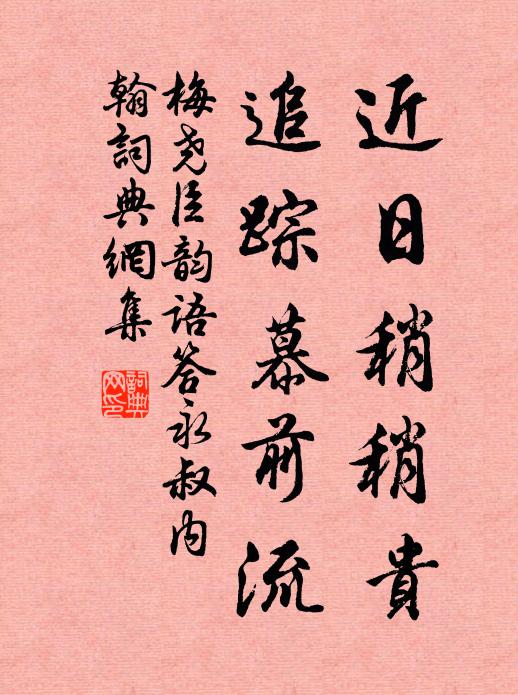 近日稍稍貴
追踪慕前流
梅尧臣韵語答永叔内
翰詞典網集
詞典网印